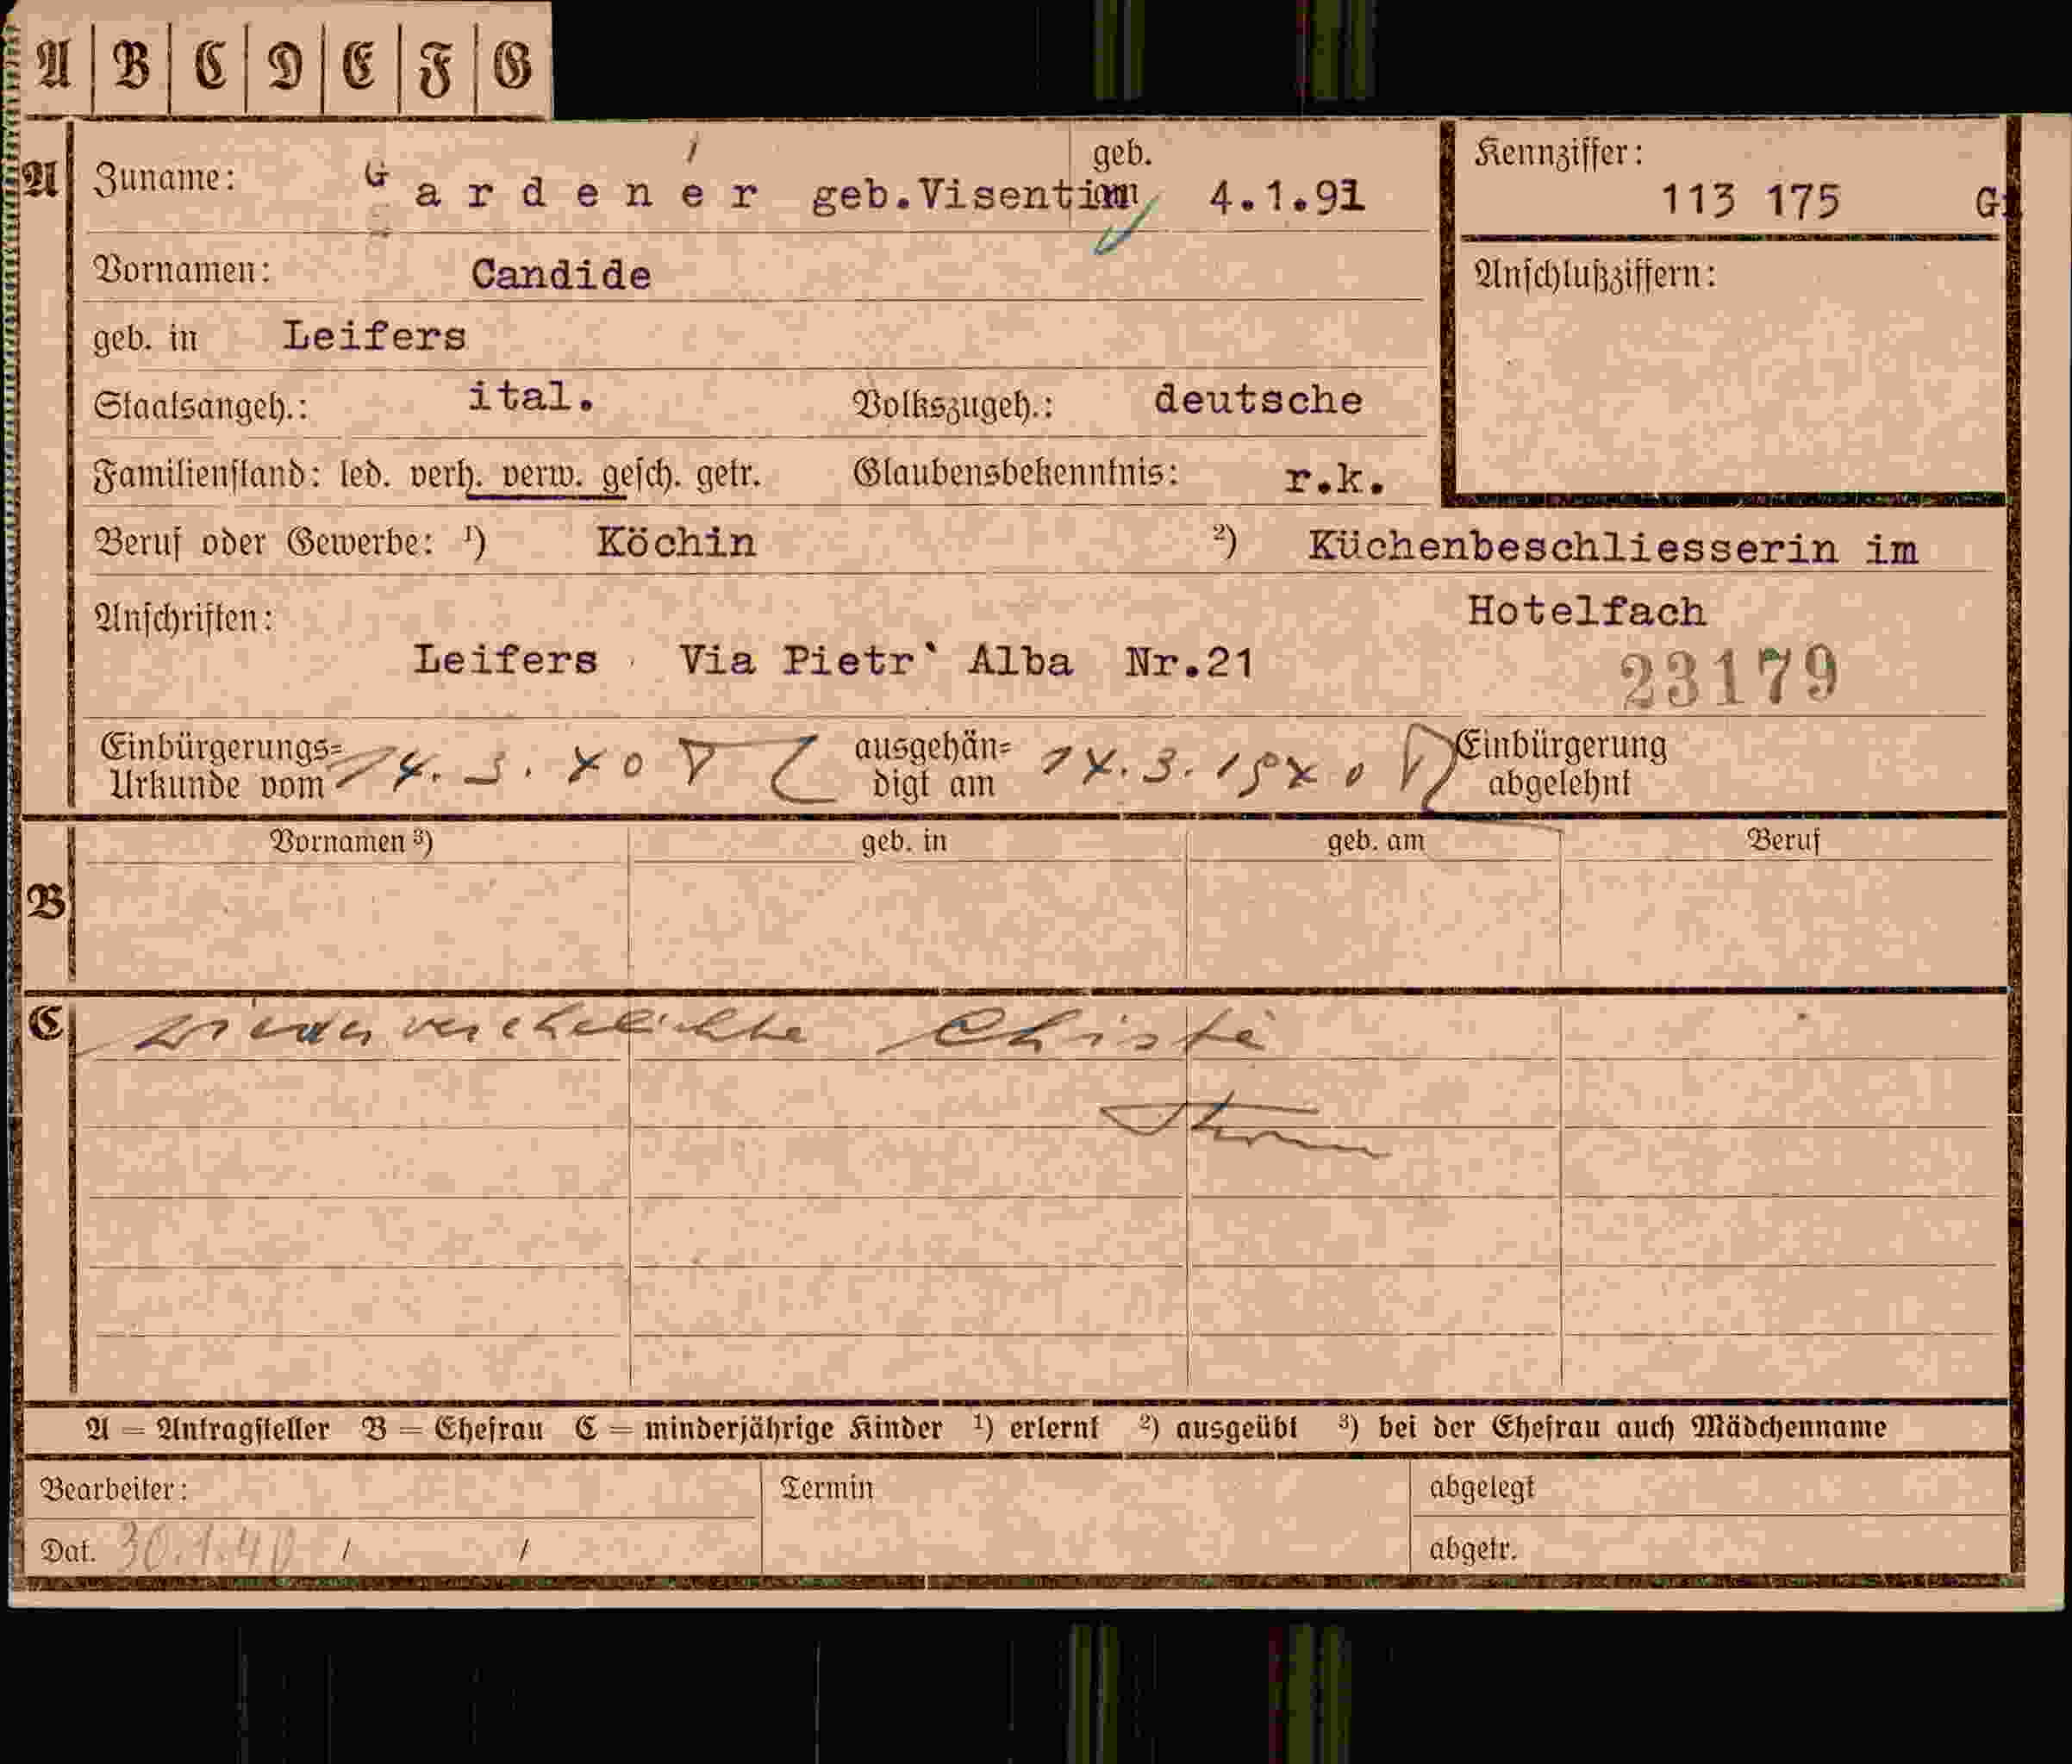 A B C D E F G
A Zuname: Gardener geb. Visentin geb. am 4.1.91 Kennziffer: 113 175 G
Vornamen: Candide Anschlußziffern:
geb. in Leifers
Staatsangeh.: ital. Volkszugeh.: deutsche
Familienstand: led. verh. verw. gesch. getr. Glaubensbekenntnis: r.k.
Beruf oder Gewerbe: 1) Köchin 2) Küchenbeschliesserin im
Hotelfach
Anschriften:
Leifers Via Pietr` Alba Nr.21
23179
Einbürgerungs= ausgehän= Einbürgerung
Urkunde vom 14.3.40 digt am 14.3.1940 abgelehnt
Vornamen 3) geb. in geb. am Beruf
B
C wiederverehelichte Chistè
A = Antragsteller B = Ehefrau C = minderjährige Kinder 1) erlernt 2) ausgeübt 3) bei der Ehefrau auch Mädchenname
Bearbeiter: Termin abgelegt
Dat. 30.1.40 / / abgetr.